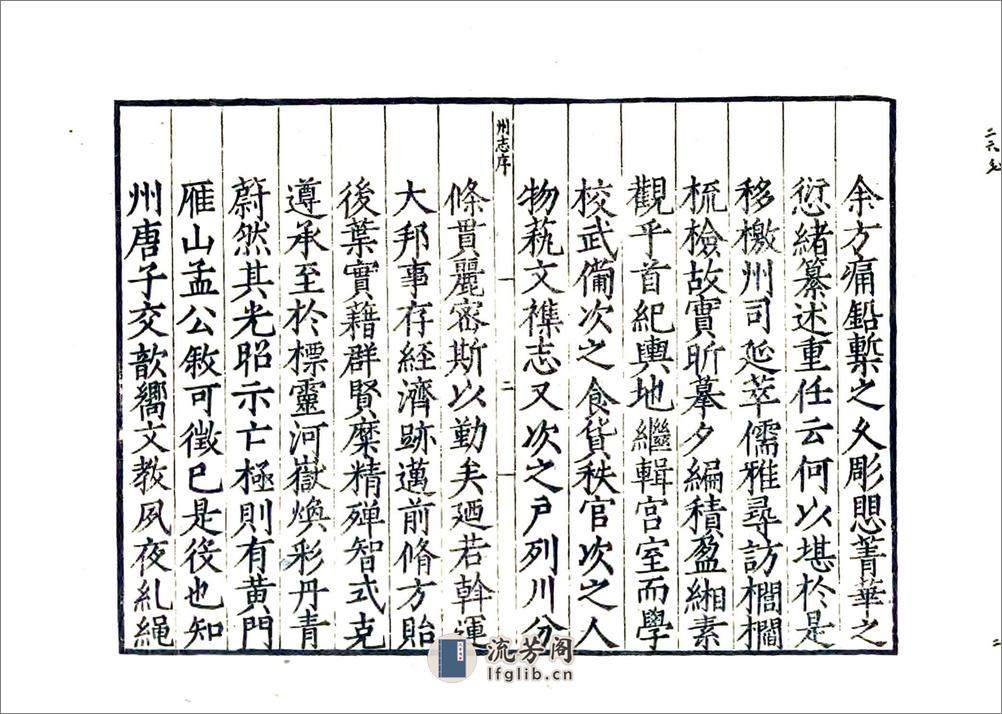 余方痛鉛槧之久彫悶菁華之
愆緒纂述重任云何以堪於是
移檄州司延萃儒雅尋訪櫩櫩
梳檢故實昕摹夕編積盈緗素
觀乎首紀輿地繼輯宫室而學
校武備次之食貨秩官次之人
物蓺文襍志又次之戶列川分
州志序 二
條貫麗密斯以勤矣廼若斡運
大邦事存経濟跡邁前脩方貽
後葉實藉群賢糜精殫智式克
遵承至於標靈河嶽煥彩丹青
蔚然其光昭示亡極則有黄門
雁山孟公敘可徵已是後也知
州唐子交歆嚮文教夙夜糺繩
流芳阁
lfglib.cn